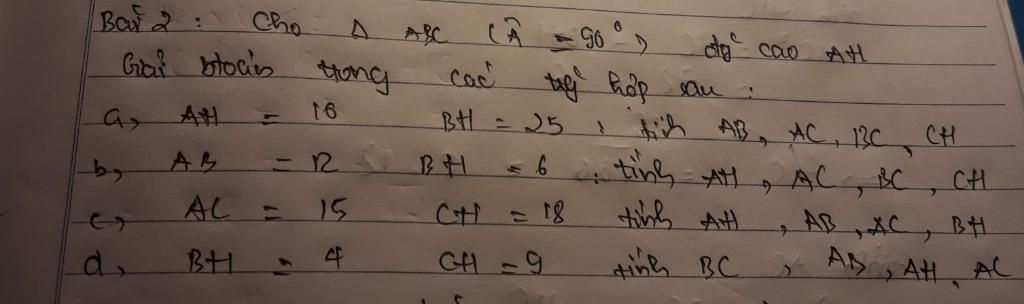 Bài 2 : Cho Δ ABC (Â = 90°) đg cao AH
Giải btoán trong các tg hợp sau :
a, AH = 16 BH = 25 ; tính AB, AC, BC, CH
b, AB = 12 BH = 6 . tính AH, AC, BC, CH
c, AC = 15 CH = 18 tính AH, AB, AC, BH
d, BH = 4 CH = 9 tính BC, AB, AH, AC